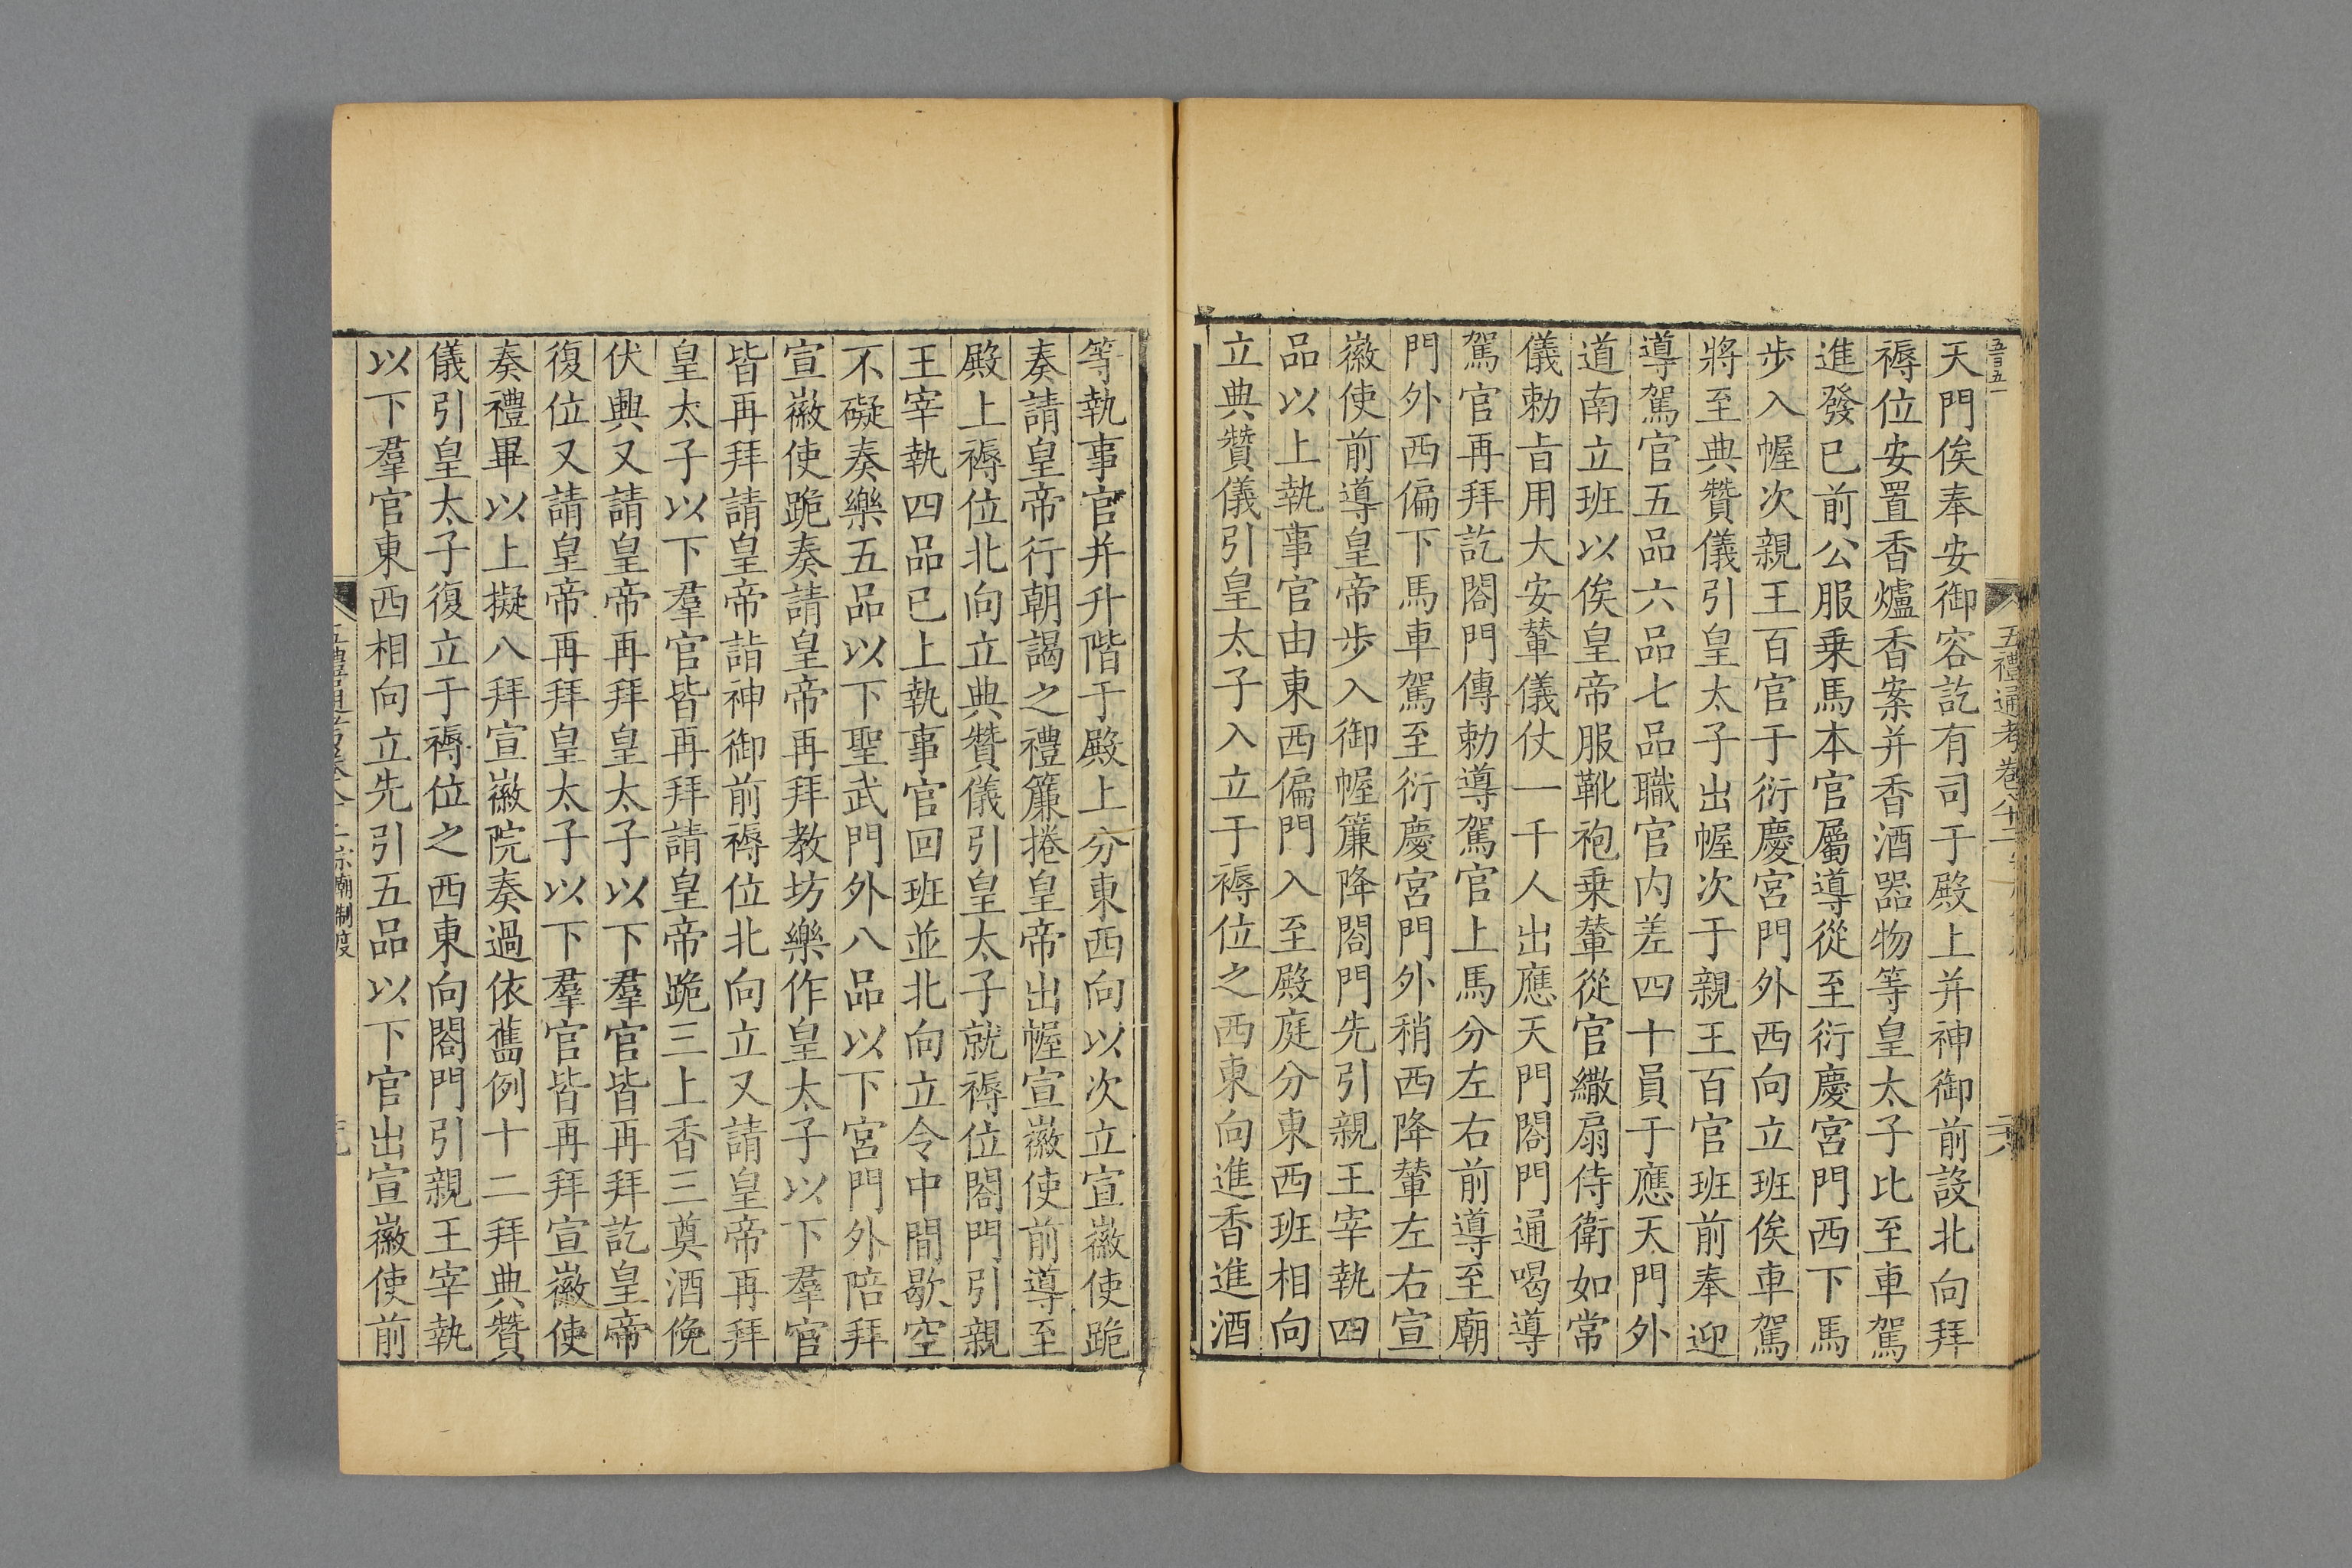 天門俟奉安御容訖有司于殿上并神御前設北向拜
褥位安置香爐香案并香酒器物等皇太子比至車駕
進發已前公服乗馬本官屬導從至衍慶宮門西下馬
步入幄次親王百官于衍慶宮門外西向立班俟車駕
將至典贊儀引皇太子出幄次于親王百官班前奉迎
導駕官五品六品七品職官内差四十員于應天門外
道南立班以俟皇帝服靴袍乗輦從官繖扇侍衛如常
儀勅旨用大安輦儀仗一千人出應天門閤門通喝導
駕官再拜訖閤門傳勅導駕官上馬分左右前導至廟
門外西偏下馬車駕至衍慶宮門外稍西降輦左右宣
徽使前導皇帝步入御幄簾降閤門先引親王宰執四
品以上執事官由東西偏門入至殿庭分東西班相向
立典贊儀引皇太子入立于褥位之西東向進香進酒
等執事官并升階于殿上分東西向以次立宣徽使跪
奏請皇帝行朝謁之禮簾捲皇帝出幄宣徽使前導至
殿上褥位北向立典贊儀引皇太子就褥位閤門引親
王宰執四品已上執事官回班並北向立令中間歇空
不礙奏樂五品以下聖武門外八品以下宮門外陪拜
宣徽使跪奏請皇帝再拜教坊樂作皇太子以下羣官
皆再拜請皇帝詣神御前褥位北向立又請皇帝再拜
皇太子以下羣官皆再拜請皇帝跪三上香三奠酒俛
伏興又請皇帝再拜皇太子以下羣官皆再拜訖皇帝
復位又請皇帝再拜皇太子以下羣官皆再拜宣徽使
奏禮畢以上擬八拜宣徽院奏過依舊例十二拜典贊
儀引皇太子復立于褥位之西東向閤門引親王宰執
以下羣官東西相向立先引五品以下官出宣徽使前